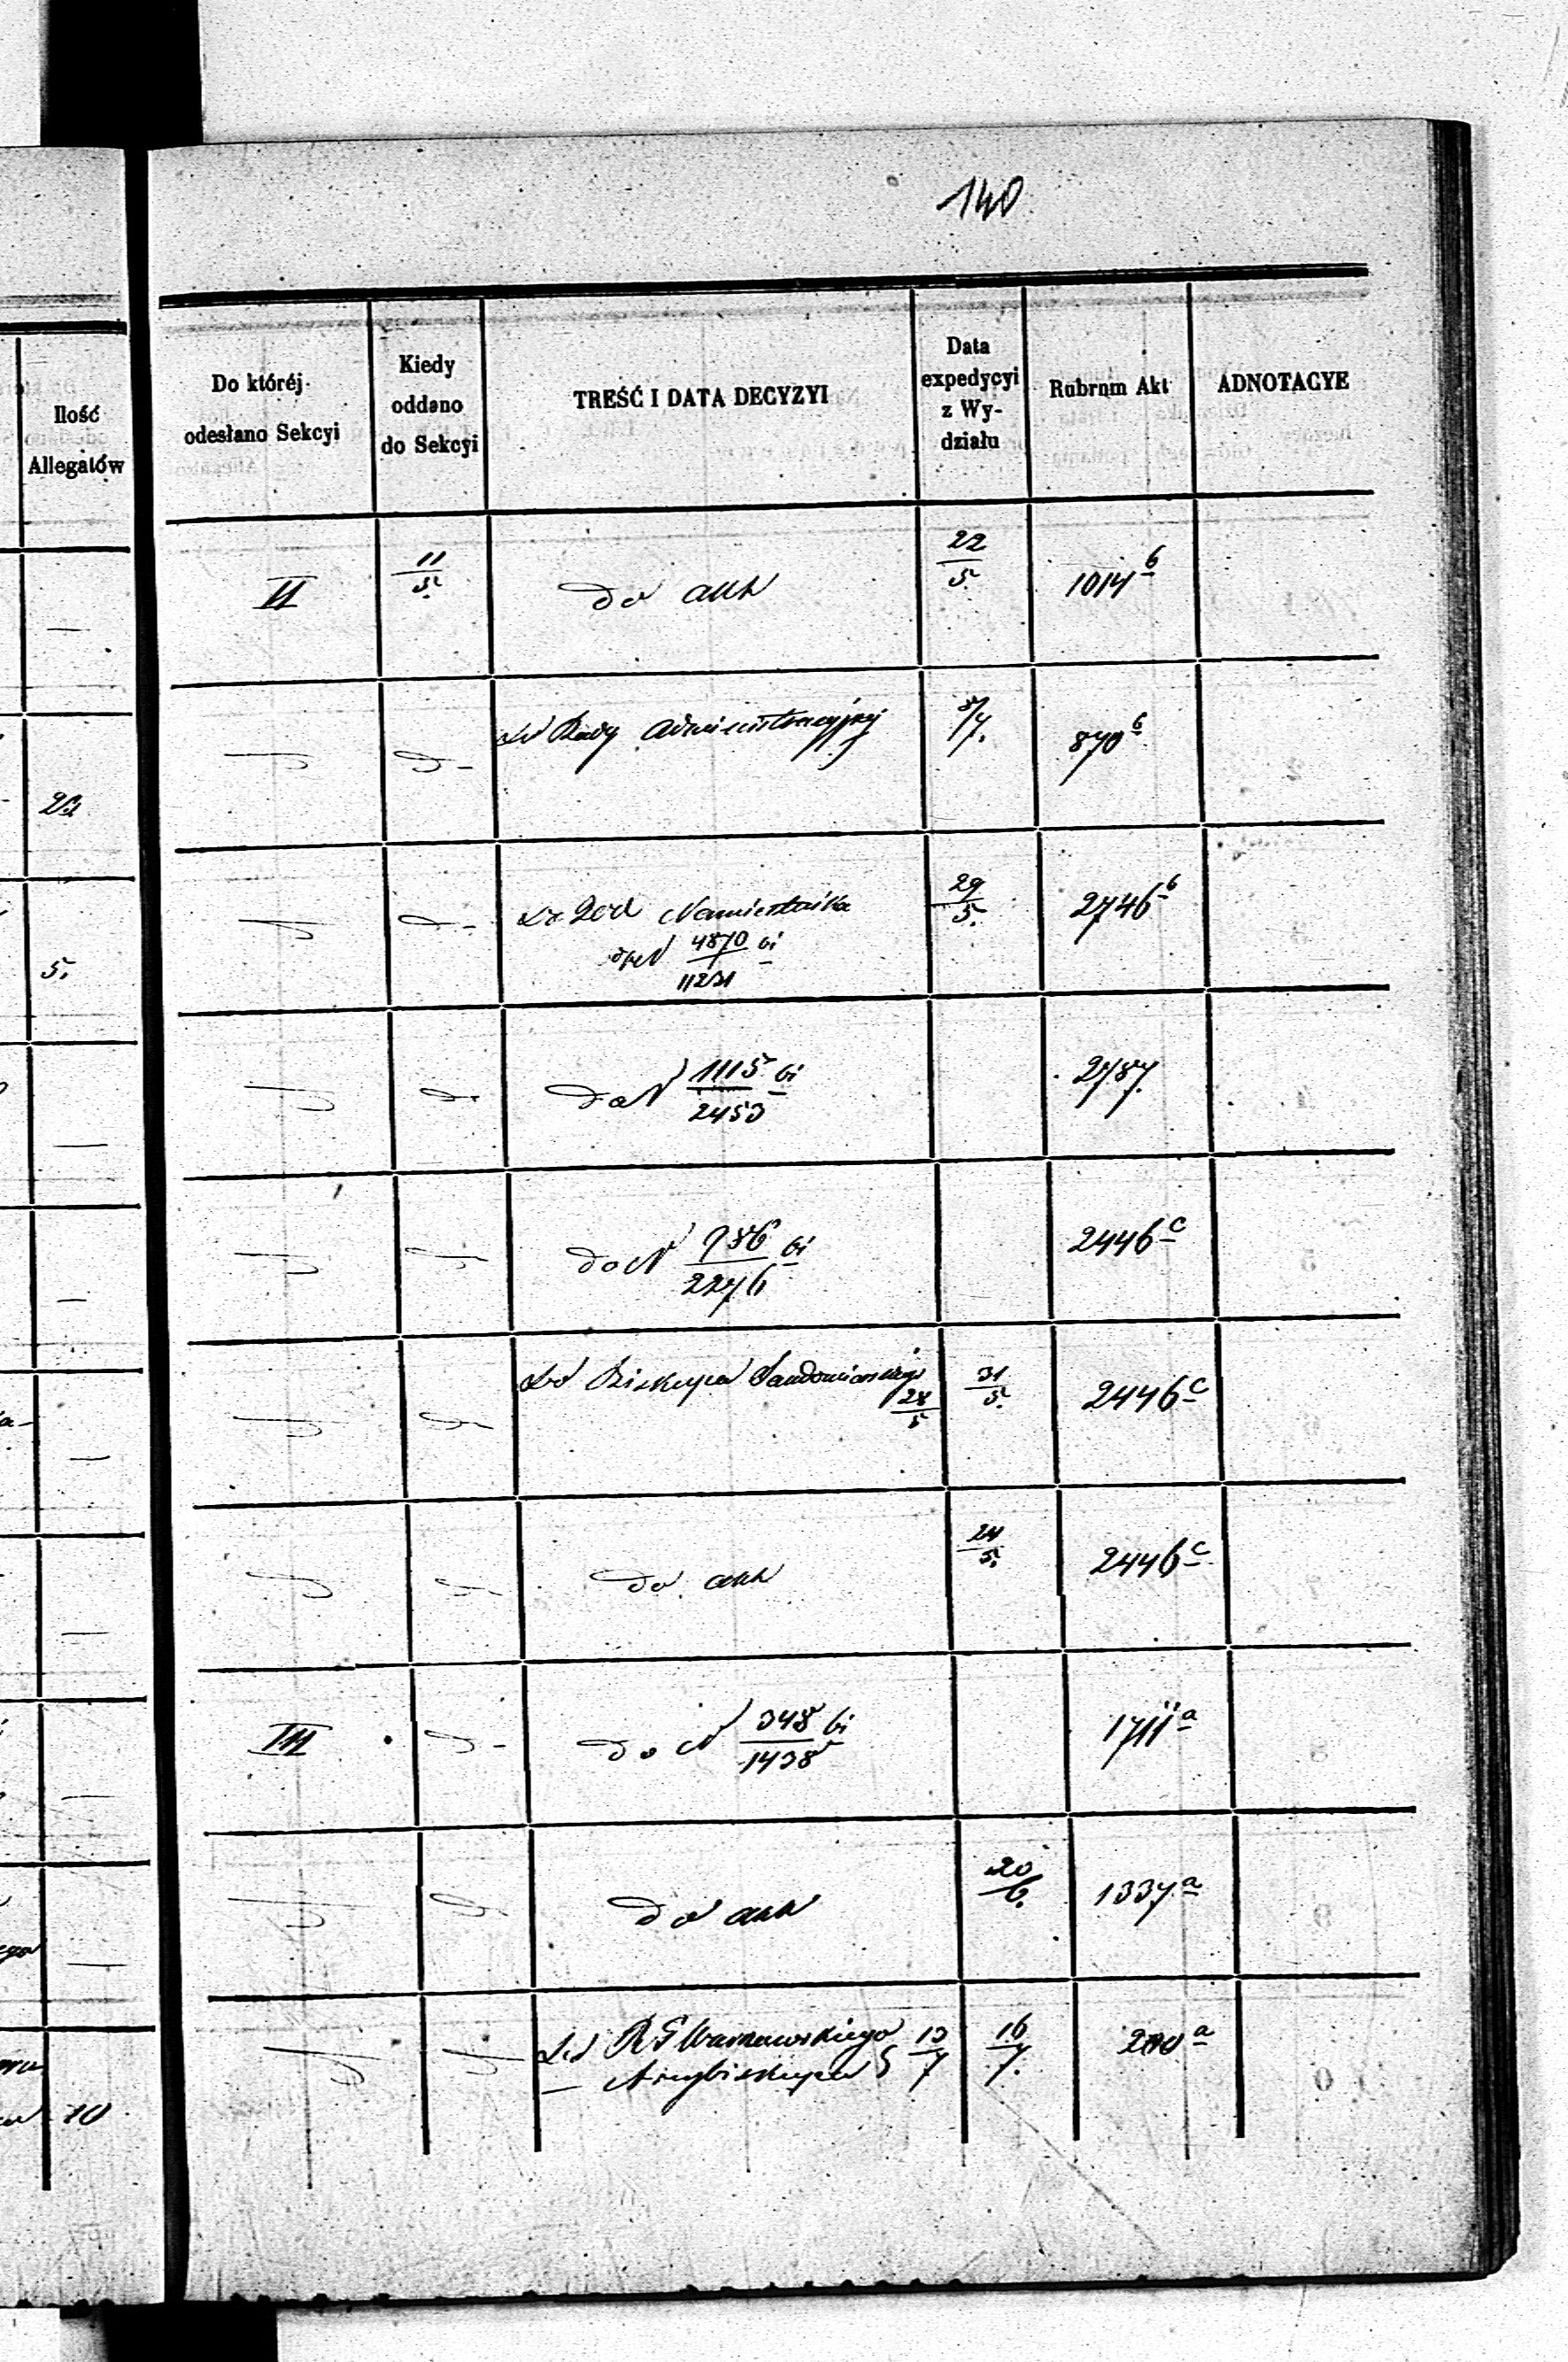 140
Ilość Allegatów
Do któréj odesłano Sekcyi
Kiedy oddano do Sekcyi
TREŚĆ I DATA DECYZYI
Data expedycyi z Wy-działu
Rubrum Akt
ADNOTACYE
II 11/5. do akt 22/5. 1014 b
Do Rady Administracyjnej 870 b
29/5. 2746 b
Namiestnika
4870 bi
5.
do N 1115/2453 bi 2787.
do N 986/2276 bi 2446 c
Do Biskupa Sandomierskiego 28/5 31/5. 2446 c
do akt 24/5. 2446 c
III do N 348/1438 bi 1711 a
do akt 20/6. 1337 a
R G Warszawskiego 13/7 16/7.
Arcybiskupa
10